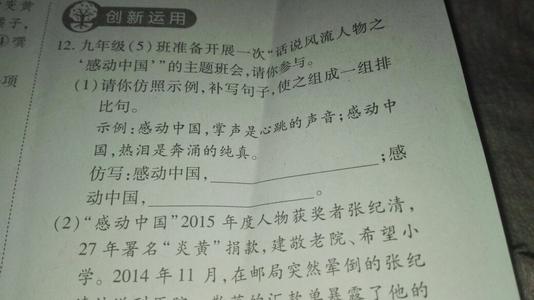 创新运用
12. 九年级（5）班准备开展一次“话说风流人物之
‘感动中国’”的主题班会，请你参与。
(1) 请你仿照示例，补写句子，使之组成一组排
比句。
示例：感动中国，掌声是心跳的声音；感动中
国，热泪是奔涌的纯真。
仿写：感动中国，＿＿＿＿＿＿＿＿；感
动中国，＿＿＿＿＿＿＿＿。
(2) “感动中国”2015 年度人物获奖者张纪清，
27 年署名“炎黄”捐款，建敬老院、希望小
学。2014 年 11 月，在邮局突然晕倒的张纪
炎黄
子，
嘴
项